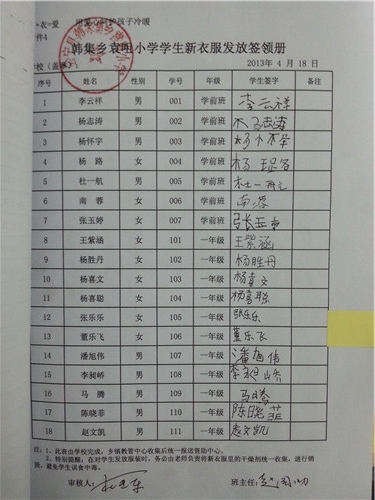 件4
韩集乡袁咀小学学生新衣服发放签领册
2013年 4 月 18 日
序号 姓名 性别 学号 年级 学生签字 备注
1 李云祥 男 001 学前班 李云祥
2 杨志涛 男 002 学前班 杨志涛
3 杨怀宇 男 003 学前班
4 杨 路 女 004 学前班 杨路
5 杜一航 男 005 学前班 杜一航
6 南 蓉 女 006 学前班 南蓉
7 张玉婷 女 007 学前班 张玉
8 王紫涵 女 101 一年级 王紫涵
9 杨胜丹 女 102 一年级 杨胜丹
10 杨喜文 女 103 一年级 杨喜文
11 杨喜聪 女 104 一年级 杨喜聪
12 张乐乐 女 105 一年级 张乐乐
13 董乐飞 女 106 一年级 董乐飞
14 潘旭伟 男 107 一年级 潘旭伟
15 李昶峤 男 108 一年级 李昶峤
16 马 腾 男 109 一年级 马腾
17 陈晓菲 男 110 一年级 陈晓菲
18 赵文凯 男 111 一年级 赵文凯
注:1、此表由学校完成,乡镇教管中心收集后统一报送资助中心。
2、特别提醒:在对学生发放服装时,务必由老师负责将新衣服里的干燥剂统一收集,进行销
毁,避免学生误食中毒。
审核人: 班主任: